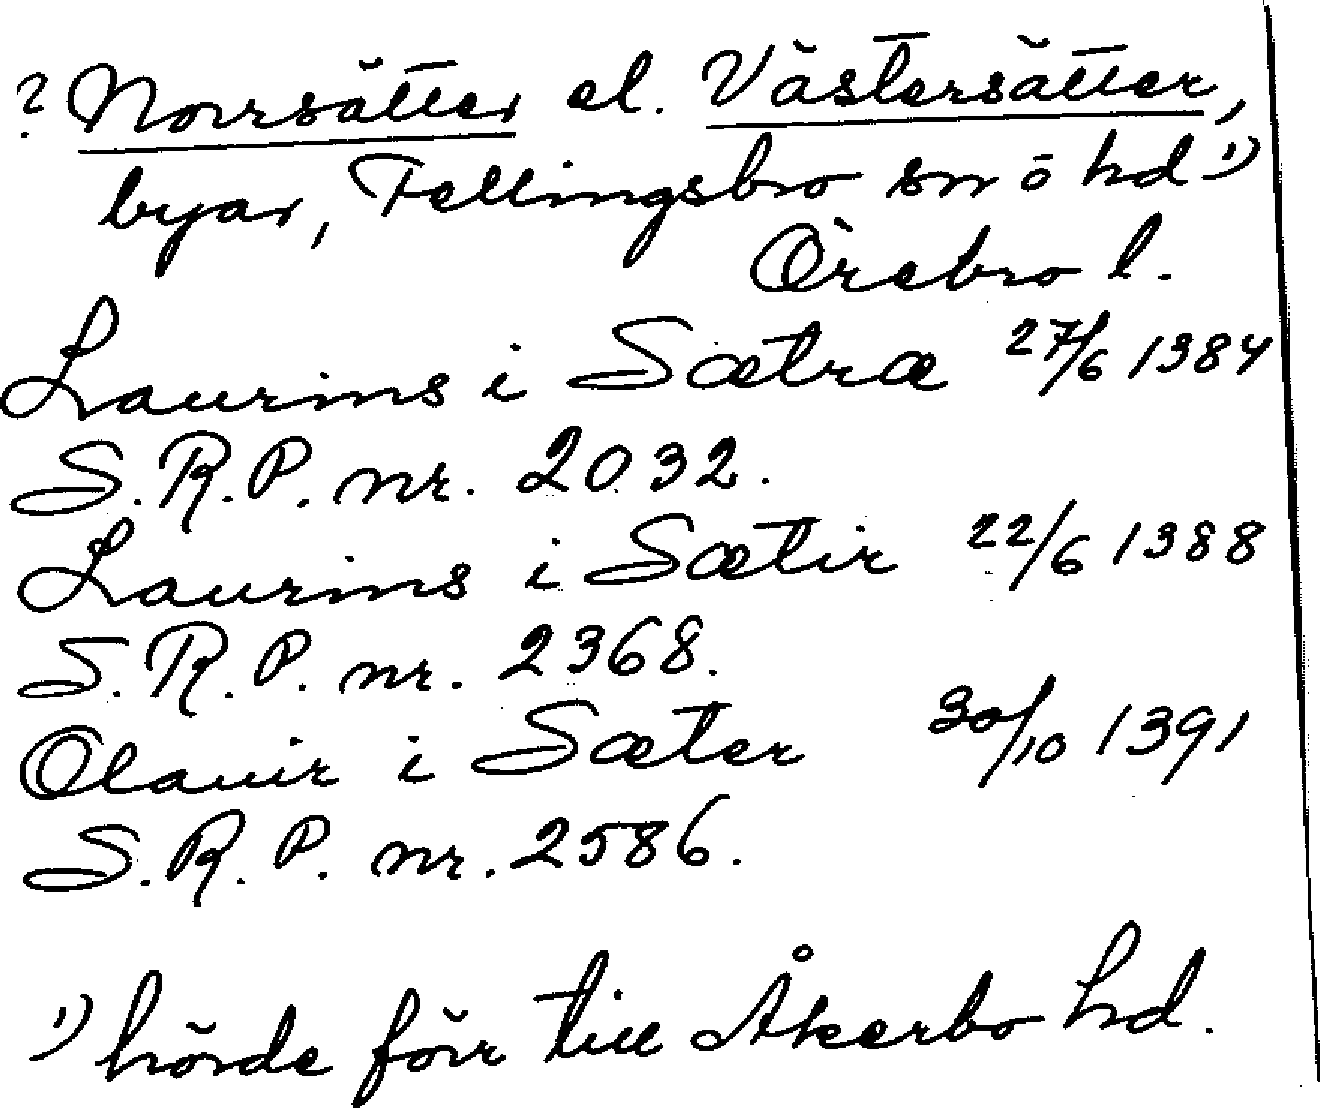 ? Norrsätter el. Västersätter,
byar, Fellingsbro sn o hd 1)
Örebro l.
Laurins i Sætræ 27/6 1384
S.R.P. nr. 2032.
Laurins i Sætir 22/6 1388
S.R.P. nr. 2368.
Olauir i Sæter 30/10 1391
S.R.P. nr. 2586.
1) hörde förr till Åkerbo hd.